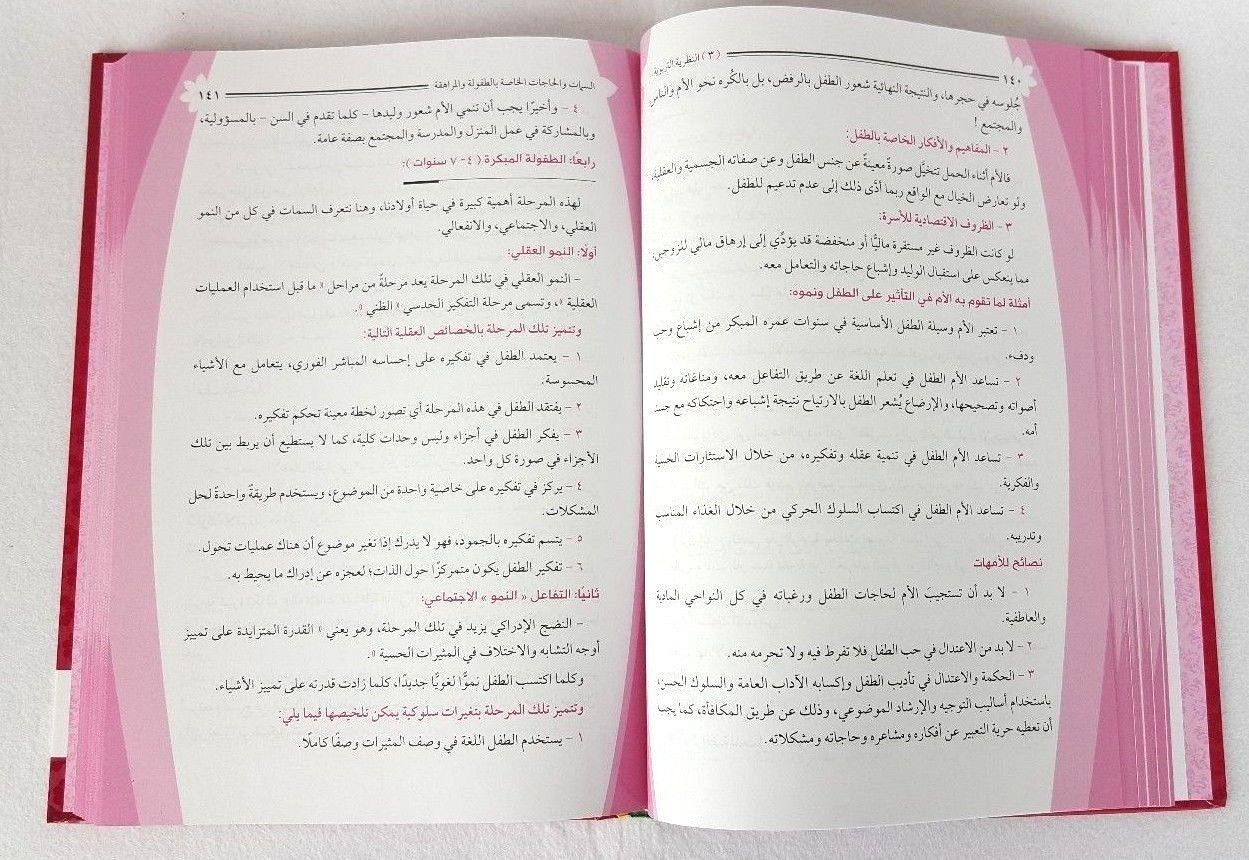 ١٤٠ (٣) النظرية التربوية
جُلوسه في حجرها، والنتيجة النهائية شعور الطفل بالرفض، بل بالكُره نحو الأم والناس
والمجتمع !
٢ - المفاهيم والأفكار الخاصة بالطفل:
فالأم أثناء الحمل تتخيَّل صورةً معينةً عن جنس الطفل وعن صفاته الجسمية والعقلية،
ولو تعارض الخيال مع الواقع ربما أدَّى ذلك إلى عدم تدعيم للطفل.
٣ - الظروف الاقتصادية للأسرة:
لو كانت الظروف غير مستقرة ماليًّا أو منخفضة قد يؤدِّي إلى إرهاق مالي للزوجين،
مما ينعكس على استقبال الوليد وإشباع حاجاته والتعامل معه.
أمثلة لما تقوم به الأم في التأثير على الطفل ونموه:
١ - تعتبر الأم وسيلة الطفل الأساسية في سنوات عمره المبكر من إشباع وحب
ودفء.
٢ - تساعد الأم الطفل في تعلم اللغة عن طريق التفاعل معه، ومناغاته وتقليد
أصواته وتصحيحها، والإرضاع يُشعر الطفل بالارتياح نتيجة إشباعه واحتكاكه مع جسد
أمه.
٣ - تساعد الأم الطفل في تنمية عقله وتفكيره، من خلال الاستثارات الحسية
والفكرية.
٤ - تساعد الأم الطفل في اكتساب السلوك الحركي من خلال الغذاء المناسب
وتدريبه.
نصائح للأمهات
١ - لا بد أن تستجيبَ الأم لحاجات الطفل ورغباته في كل النواحي المادية
والعاطفية.
٢ - لا بد من الاعتدال في حب الطفل فلا تفرط فيه ولا تحرمه منه.
٣ - الحكمة والاعتدال في تأديب الطفل وإكسابه الآداب العامة والسلوك الحسن،
باستخدام أساليب التوجيه والإرشاد الموضوعي، وذلك عن طريق المكافأة، كما يجب
أن تعطيه حرية التعبير عن أفكاره ومشاعره وحاجاته ومشكلاته.
السمات والحاجات الخاصة بالطفولة والمراهقة ١٤١
٤ - وأخيرًا يجب أن تنمي الأم شعور وليدها - كلما تقدم في السن - بالمسؤولية،
وبالمشاركة في عمل المنزل والمدرسة والمجتمع بصفة عامة.
رابعًا: الطفولة المبكرة ( ٤ - ٧ سنوات ):
لهذه المرحلة أهمية كبيرة في حياة أولادنا، وهنا نتعرف السمات في كل من النمو
العقلي، والاجتماعي، والانفعالي.
أولًا: النمو العقلي:
- النمو العقلي في تلك المرحلة يعد مرحلةً من مراحل « ما قبل استخدام العمليات
العقلية »، وتسمى مرحلة التفكير الحدسي « الظني ».
وتتميز تلك المرحلة بالخصائص العقلية التالية:
١ - يعتمد الطفل في تفكيره على إحساسه المباشر الفوري، يتعامل مع الأشياء
المحسوسة.
٢ - يفتقد الطفل في هذه المرحلة أي تصور لخطة معينة تحكم تفكيره.
٣ - يفكر الطفل في أجزاء وليس وحدات كلية، كما لا يستطيع أن يربط بين تلك
الأجزاء في صورة كل واحد.
٤ - يركز في تفكيره على خاصية واحدة من الموضوع، ويستخدم طريقةً واحدةً لحل
المشكلات.
٥ - يتسم تفكيره بالجمود، فهو لا يدرك إذا تغير موضوع أن هناك عمليات تحول.
٦ - تفكير الطفل يكون متمركزًا حول الذات؛ لعجزه عن إدراك ما يحيط به.
ثانيًا: التفاعل « النمو » الاجتماعي:
- النضج الإدراكي يزيد في تلك المرحلة، وهو يعني « القدرة المتزايدة على تمييز
أوجه التشابه والاختلاف في المثيرات الحسية ».
وكلما اكتسب الطفل نموًّا لغويًّا جديدًا، كلما زادت قدرته على تمييز الأشياء.
وتتميز تلك المرحلة بتغيرات سلوكية يمكن تلخيصها فيما يلي:
١ - يستخدم الطفل اللغة في وصف المثيرات وصفًا كاملًا.